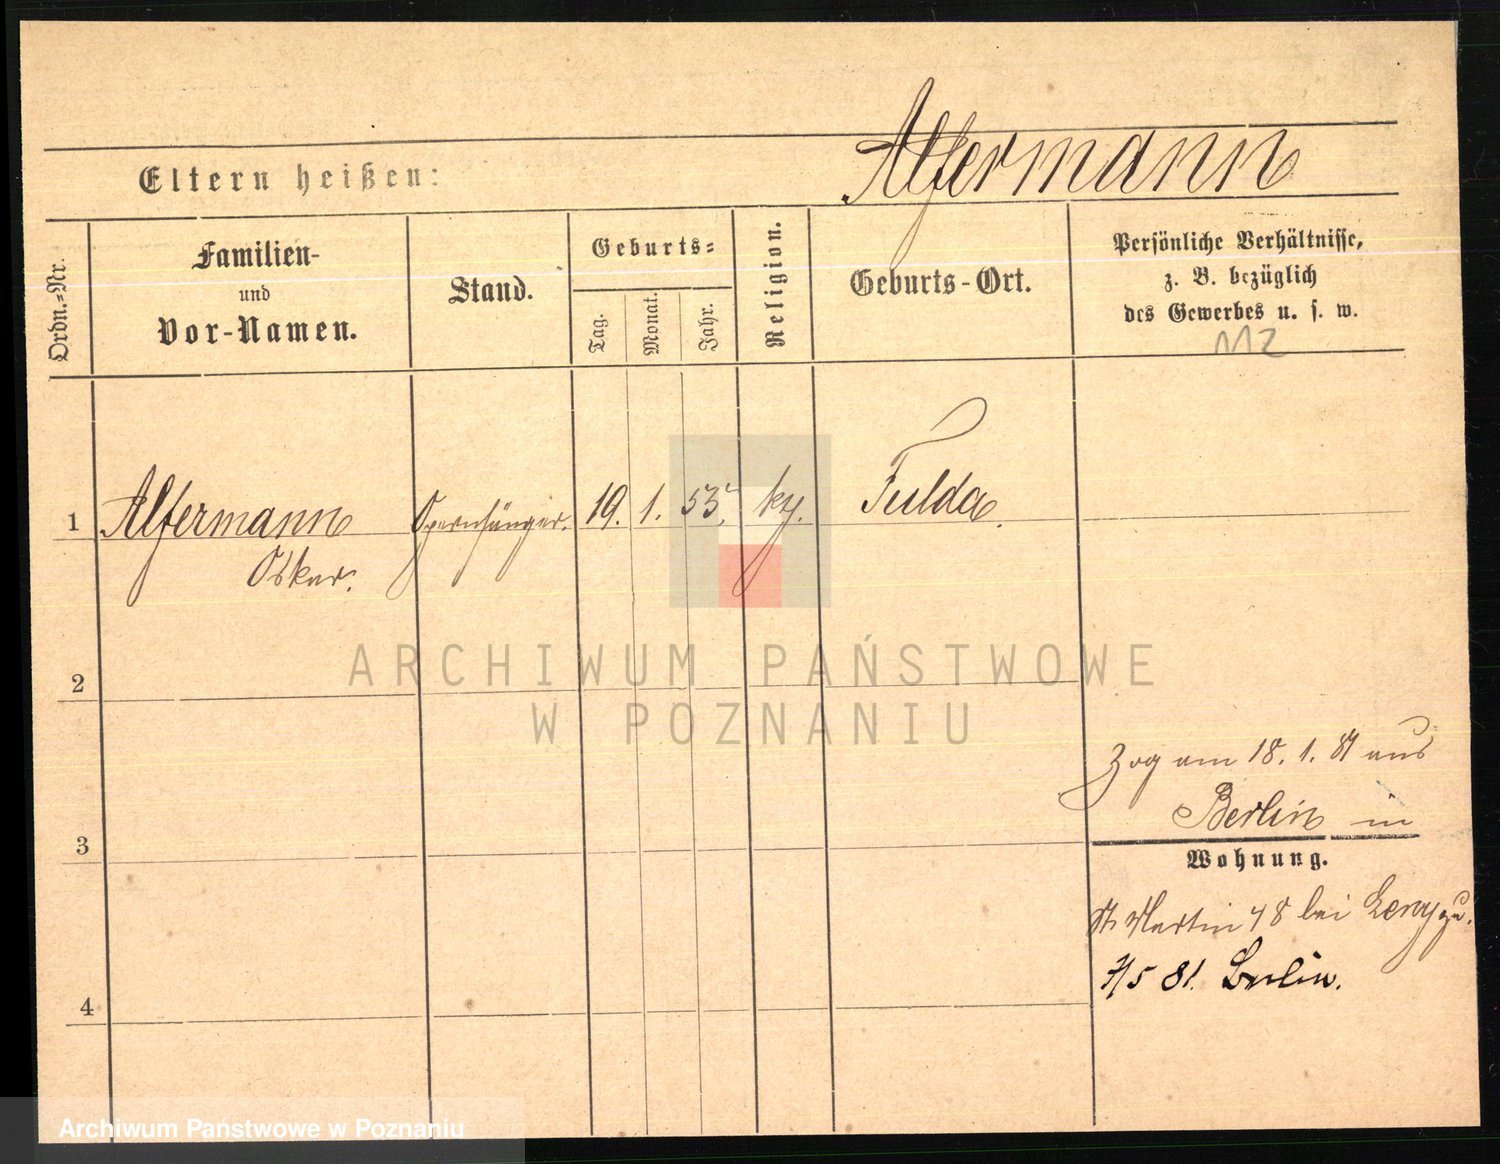 Alfermann
Eltern heißen:
Ordn.=Nr.
Familien-
und
Vor-Namen.
Stand.
Geburts=
Tag.
Monat.
Jahr.
Religion.
Geburts-Ort.
Persönliche Verhältnisse,
z. B. bezüglich
des Gewerbes u. s. w.
112
1 Alfermann Opernsänger. 19. 1. 53. Fulda.
Oskar.
2
ARCHIWUM PAŃSTWOWE
W POZNANIU
Zog am 18. 1. 81 aus
Berlin in
3
Wohnung.
St. Martin 48 bei
7/5 81. Berlin.
4
Archiwum Państwowe w Poznaniu